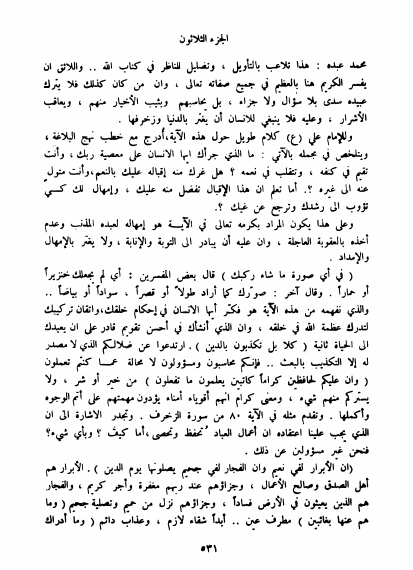 الجزء الثلاثون
محمد عبده : هذا تلاعب بالتأويل ، وتضليل للناظر في كتاب الله .. واللائق ان
يفسر الكريم هنا بالعظيم في جميع صفاته تعالى ، وان من كان كذلك فلا يترك
عبيده سدى بلا سؤال ولا جزاء ، بل يحاسبهم ويثيب الأخيار منهم ، ويعاقب
الأشرار ، وعليه فلا ينبغي للانسان أن يغتر بالدنيا وزخرفها .
وللإمام علي (ع) كلام طويل حول هذه الآية،أدرج مع خطب نهج البلاغة ،
ويتلخص في مجمله بالآتي : ما الذي جرأك ايها الانسان على معصية ربك، وأنت
تقيم في كنفه ، وتتقلب في نعمه ؟ هل غرك منه إقباله عليك بالنعم،وأنت متول
عنه الى غيره ؟. أما تعلم ان هذا الإقبال تفضل منه عليك ، وإمهال لك كسي
تؤوب الى رشدك وترجع عن غيك ؟.
وعلى هذا يكون المراد بكرمه تعالى في الآيـة هو إمهاله لعبده المذنب وعدم
أخذه بالعقوبة العاجلة ، وان عليه أن يبادر الى التوبة والإنابة ، ولا يغتر بالإمهال
والإمداد .
( في أي صورة ما شاء ركبك ) قال بعض المفسرين : أي لم يجعلك خنزيراً
أو حماراً . وقال آخر : صوّرك كما أراد طولاً أو قصراً ، سواداً أو بياضاً ..
والذي نفهمه من هذه الآية هو فكّر أيها الانسان في إحكام خلقك،واتقان تركيبك
لتدرك عظمة الله في خلقه ، وان الذي أنشأك في أحسن تقويم قادر على ان يعيدك
الى الحياة ثانية ( كلا بل تكذبون بالدين ) . ارتدعوا عن ضلالكم الذي لا مصدر
له إلا التكذيب بالبعث .. فإنكم محاسبون ومسؤولون لا محالة عمـا كنتم تعملون
( وان عليكم لحافظين كراماً كاتبين يعلمون ما تفعلون ) من خير أو شر ، ولا
يستركم منهم شيء ، ومعنى كرام انهم أقوياء أمناء يؤدون مهمتهم على أتم الوجوه
وأكملها . وتقدم مثله في الآية ٨٠ من سورة الزخرف . وتجدر الاشارة الى ان
الذي يجب علينا اعتقاده ان أعمال العباد تُحفظ وتحصى،أما كيف ؟ وبأي شيء؟
فنحن غير مسؤولين عن ذلك .
(ان الأبرار لفي نعيم وان الفجار لفي جحيم يصلونها يوم الدين ) . الأبرار هم
أهل الصدق وصالح الأعمال ، وجزاؤهم عند ربهم مغفرة وأجر كريم ، والفجار
هم الذين يعيثون في الأرض فساداً ، وجزاؤهم نزل من حميم وتصلية جحيم ( وما
هم عنها بغائبين ) مطرف عين .. أبداً شقاء لازم ، وعذاب دائم ( وما أدراك
٥٣١